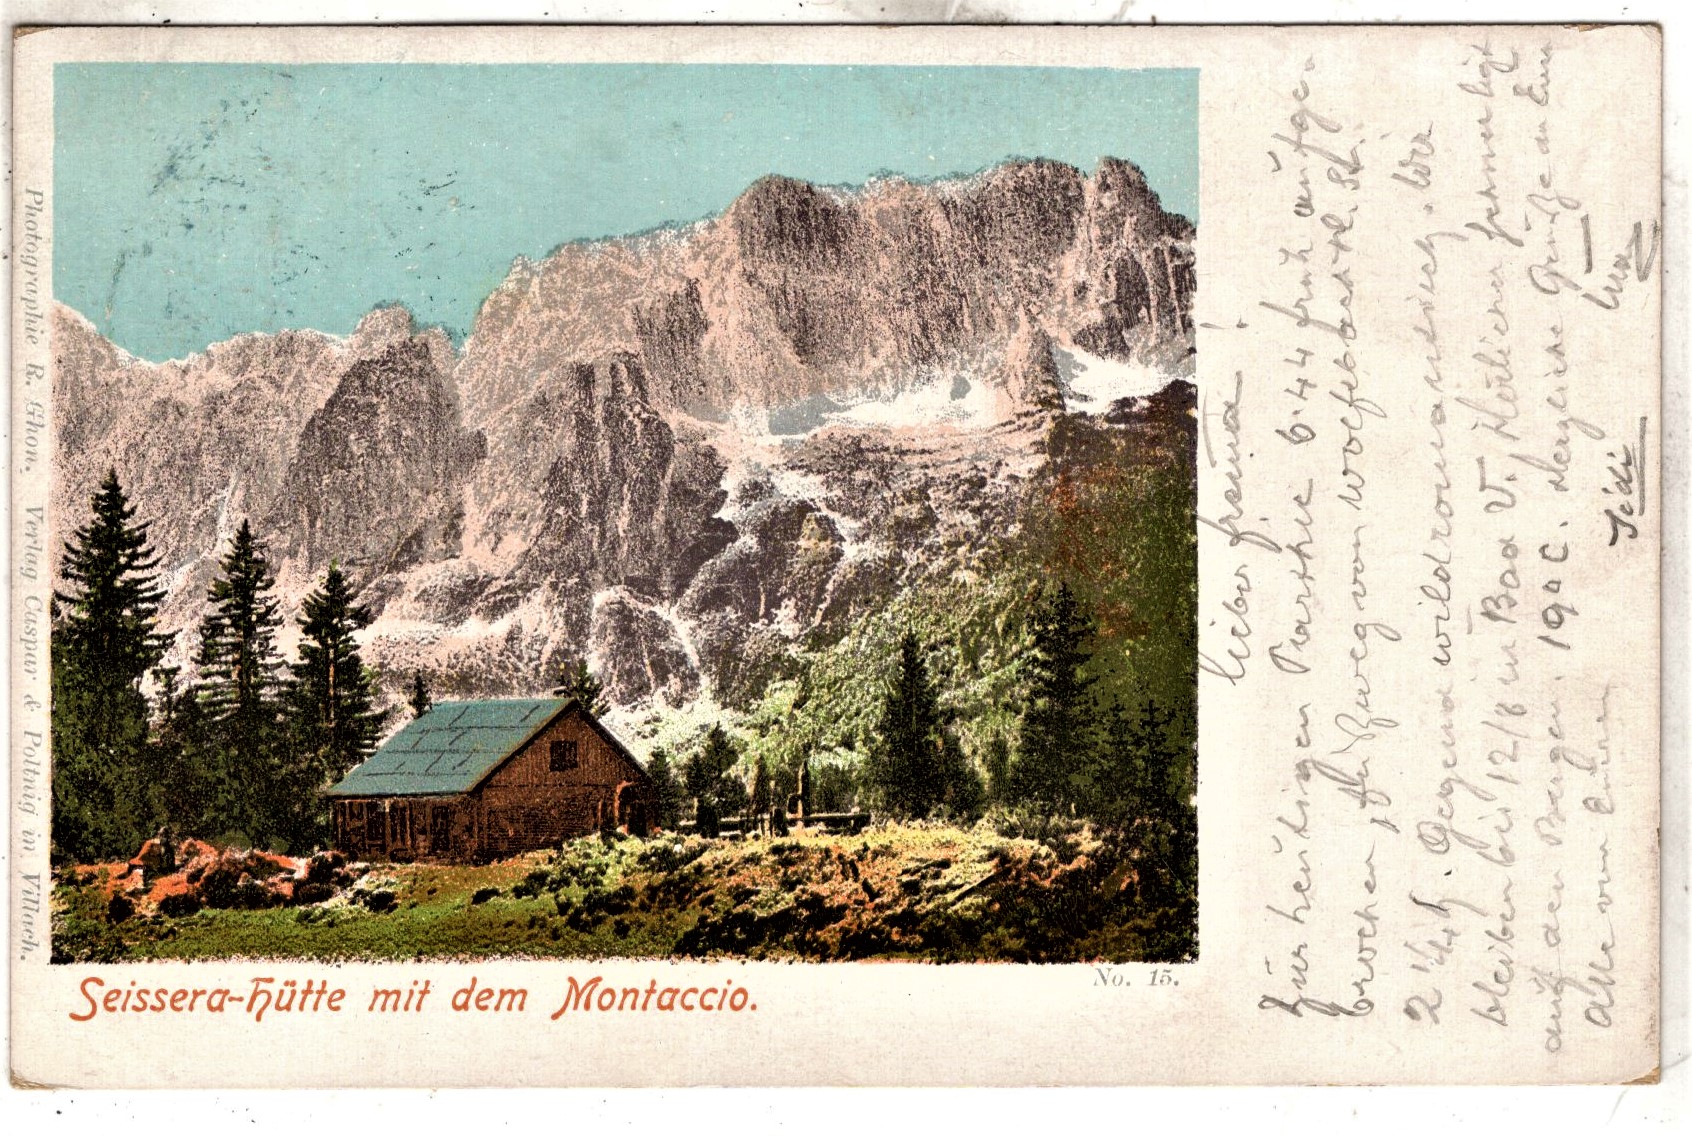 Photographie R. Ghon. Verlag Caspar & Poltnig in Villach.
Seissera-Hütte mit dem Montaccio.
No. 15.
Lieber Freund!
Zur heutigen Parthie 6.44 früh aufge-
brochen, Fußweg von Wolfsbach
2 1/4 h. Gegend wildromantisch. Wir
bleiben bis 12/8 in Bad V. Herlicher
auf den Bergen. 19° C. Herzliche Grüße an Eure
Alle von Euren